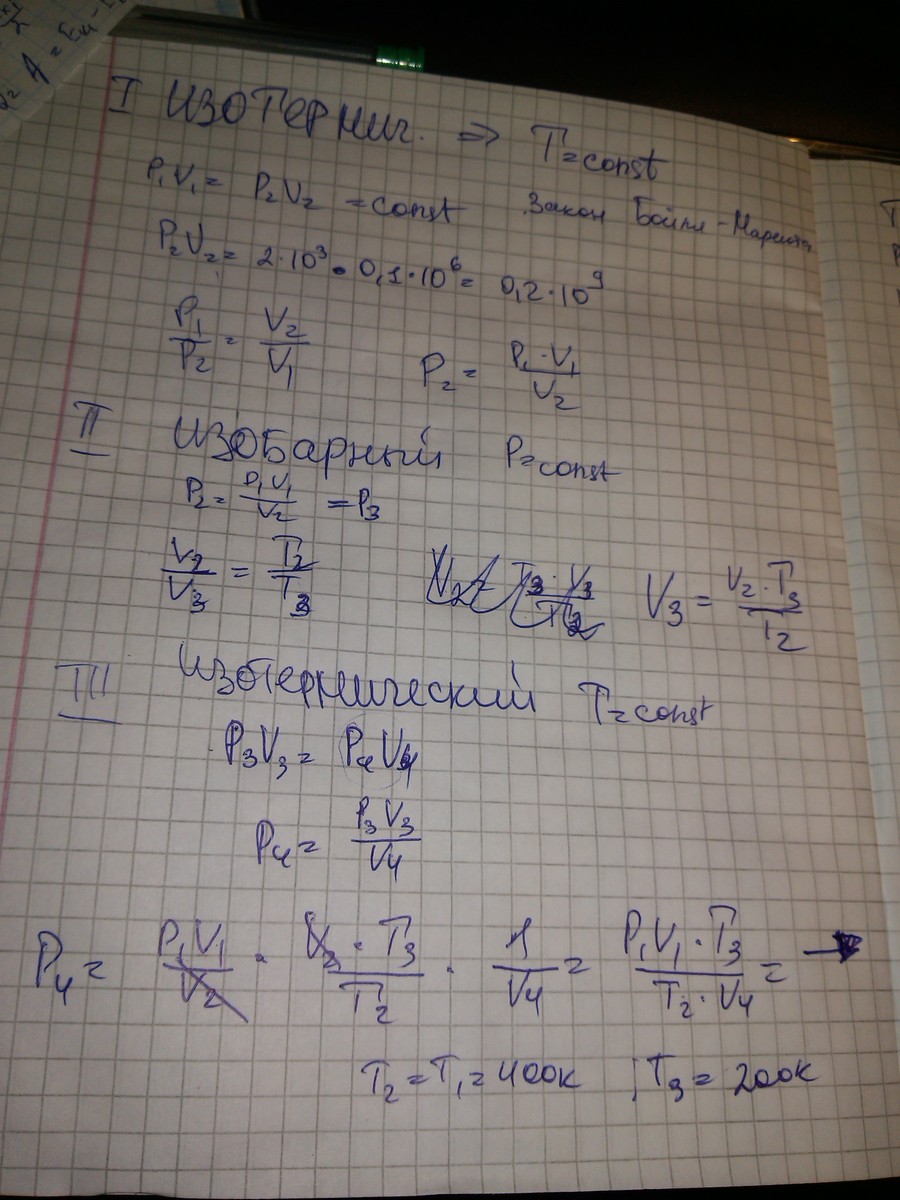 A = Eк4 -
I ИЗОТЕРМИЧ. ⇒ T=const
P₁V₁ = P₂V₂ = const Закон Бойля-Мариотта
P₂V₂ = 2·10³ · 0,1·10⁶ = 0,2·10⁹
P₁/P₂ = V₂/V₁ P₂ = P₁·V₁/V₂
II Изобарный P=const
P₂ = P₁V₁/V₂ = P₃
V₂/V₃ = T₂/T₃ V₃ = V₂·T₃/T₂
III Изотермический T=const
P₃V₃ = P₄V₄
P₄ = P₃V₃/V₄
P₄ = P₁V₁/V₂ · V₂·T₃/T₂ · 1/V₄ = P₁V₁·T₃/T₂·V₄ = →
T₂ = T₁ = 400к ; T₃ = 200к